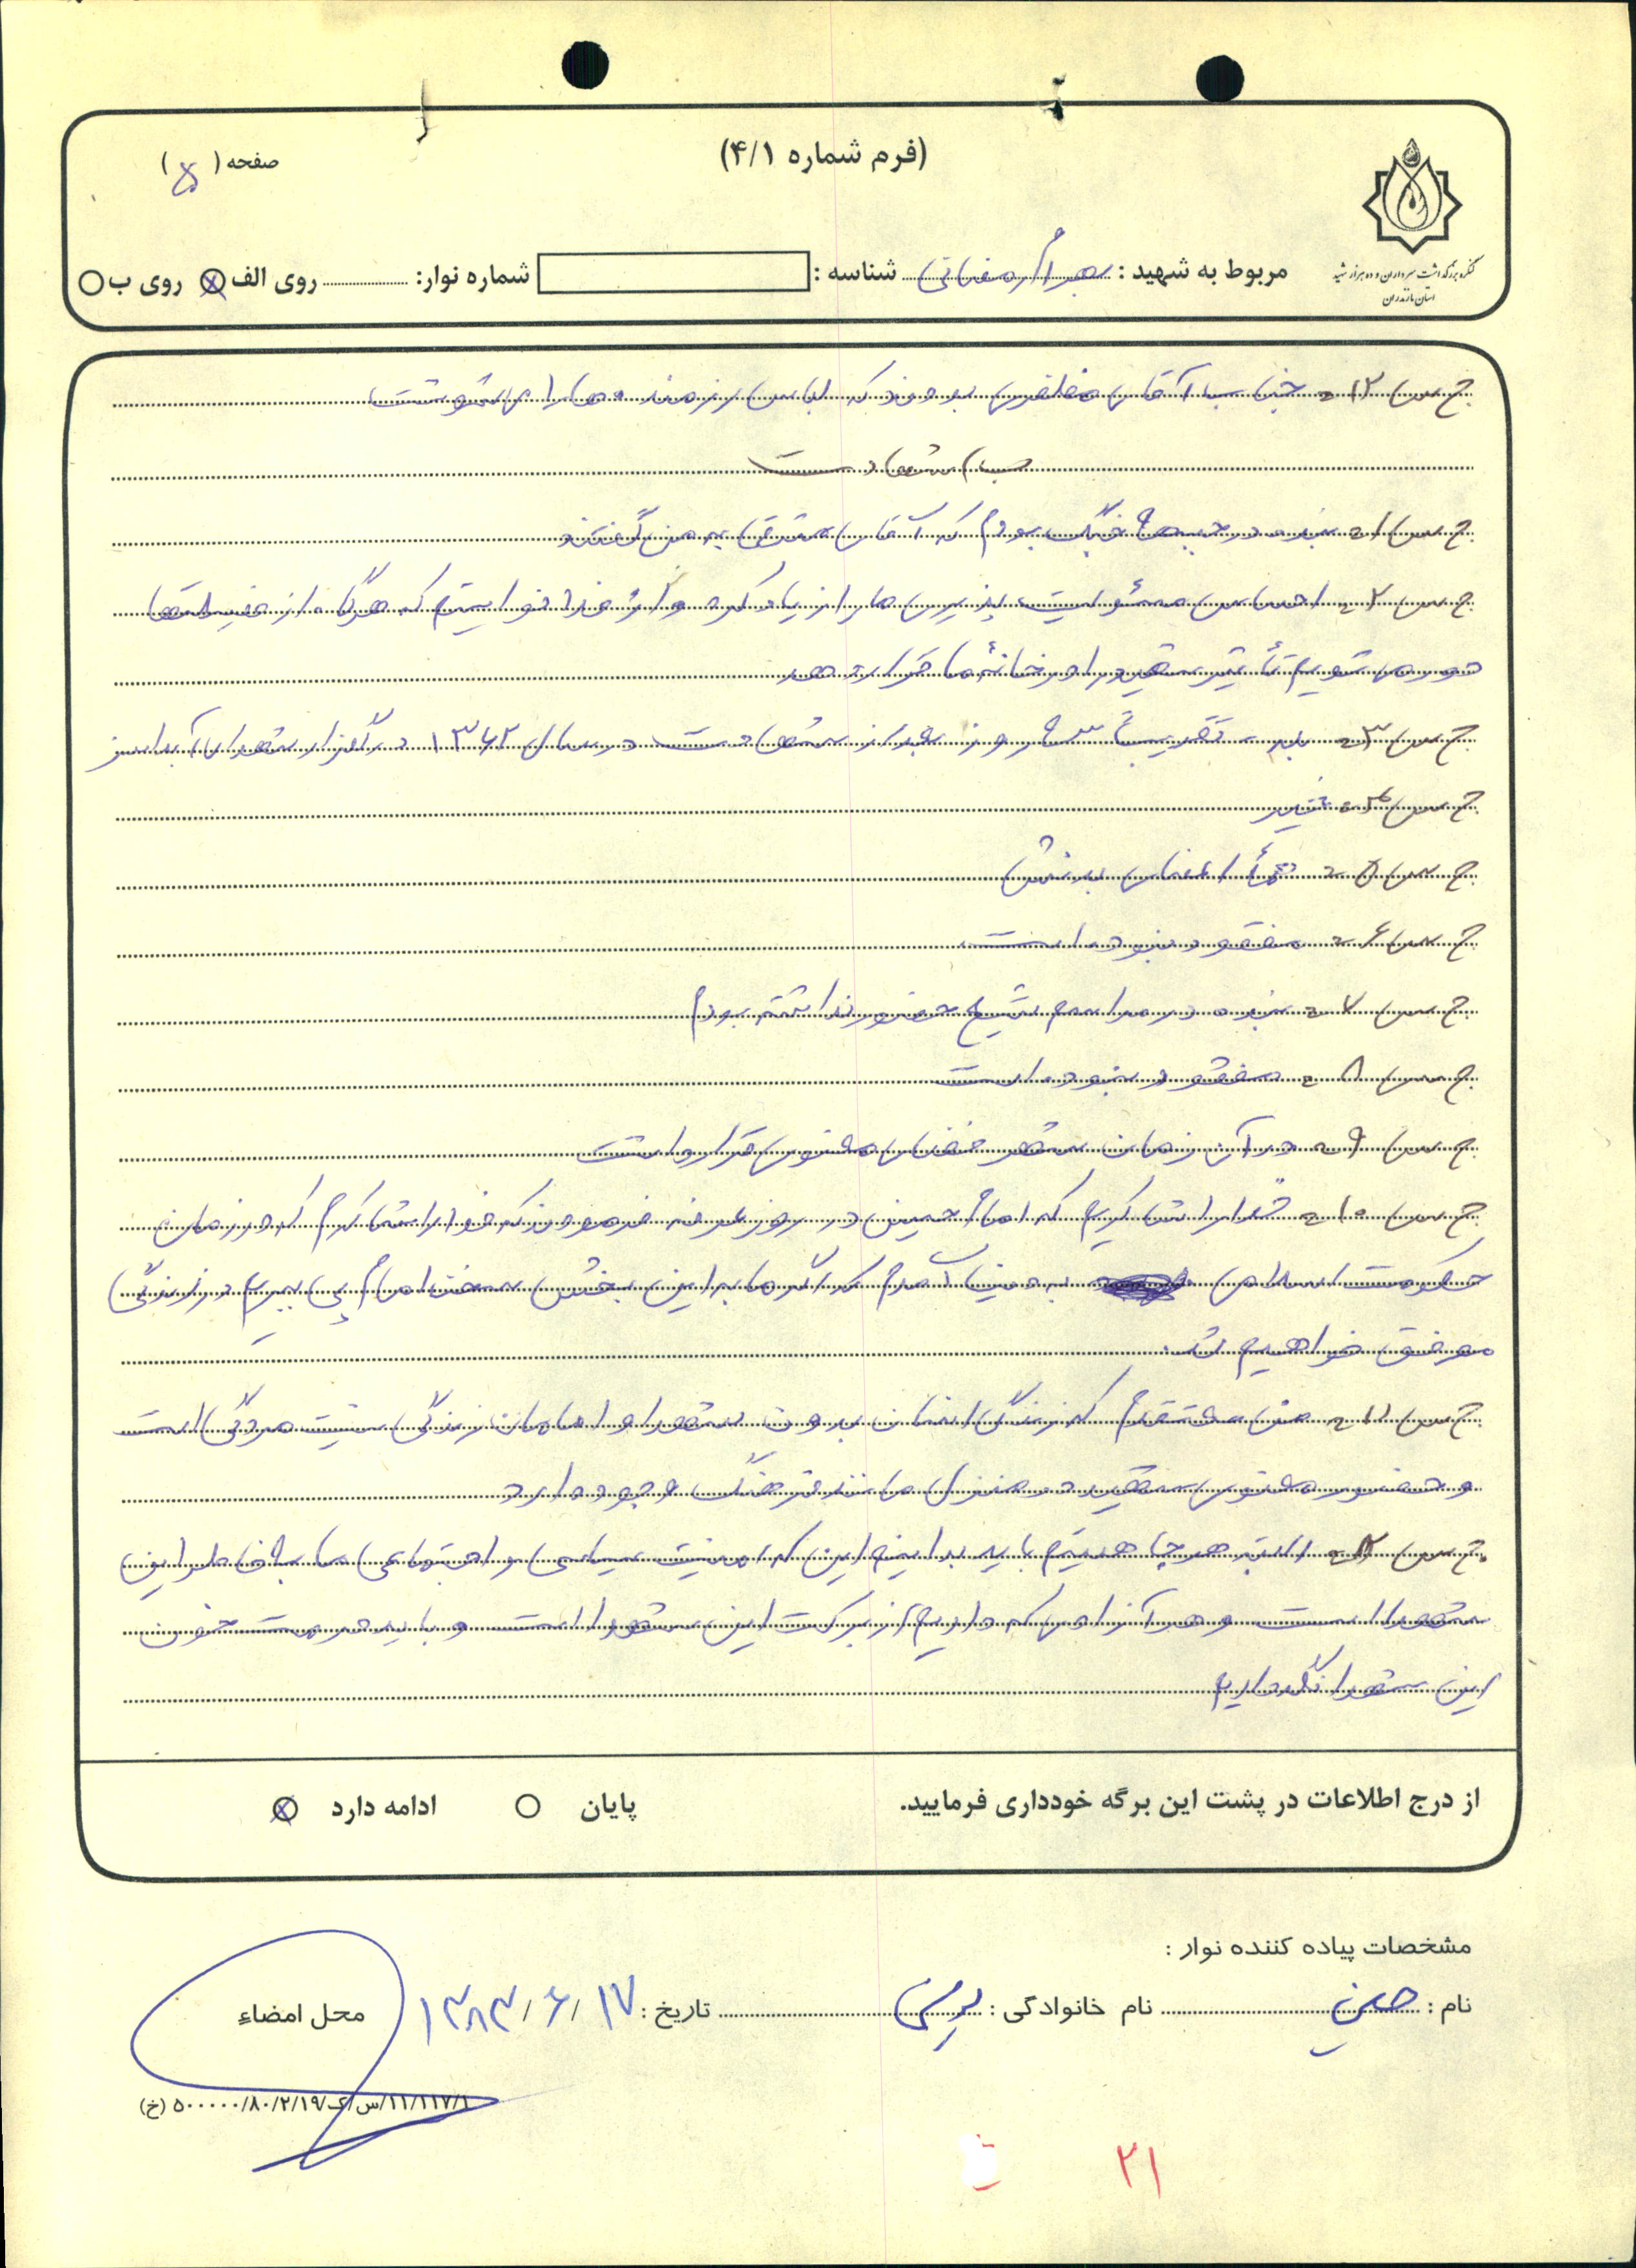 (فرم شماره ۴/۱)
صفحه ( ۵ )
کنگره بزرگداشت سرداران و ده هزار شهید
استان مازندران
مربوط به شهید : بهرام رمضانی شناسه : شماره نوار: روی الف روی ب
ج س ۱۲ـ جناب آقای مظفری بودند که لباس رزمنده ها را می شوشت
شهادت
ج س ۱ـ بنده در جبهه جنگ بودم که آقای متقی به من گفتند
ج س ۲ـ احساس مسئولیت پذیری ما را زیاد کرد و از خدا خواستیم که هرگاه از فضیلتها
دور می شویم تأثیر شهید را در خانه ما قرار دهد
ج س ۳ـ بله ـ تقریباً ۳ روز بعد از شهادت در سال ۱۳۶۲ در گلزار شهدای
ج س ۴ـ خیر
ج س ۵ـ اعضای بدنش
ج س ۶ـ مفقود نبوده است
ج س ۷ـ بنده در مراسم تشیع حضور نداشته بودم
ج س ۸ـ مفقود نبوده است
ج س ۹ـ در آن زمان شهر فضای معنوی قرار داشت
ج س ۱۰ـ خدا را شکر کریم که امام حسین در روز عرفه فرمودند که خدا را شکر کرم که در زمان
حکومت اسلامی به دنیا آمدم که اگر ما به این بخش سخن امام پی ببریم در زندگی
موفق خواهیم شد.
ج س ۱۱ـ من معتقدم که زندگی انسان بدون شهدا و امامان زندگی نیست مردگی است
و حضور معنوی شهید در منزل مانند فرهنگ وجود دارد
ج س ۱۲ـ البته هر جا هستیم باید بدانیم این که امنیت سیاسی و اجتماعی ما بخاطر این
شهدا است و هر آزادی که داریم از برکت این شهدا است و باید حرمت خون
این شهدا نگه داریم
از درج اطلاعات در پشت این برگه خودداری فرمایید.
پایان ادامه دارد
مشخصات پیاده کننده نوار :
نام : حسین نام خانوادگی : تاریخ : ۱۳۸۳/۶/۱۷ محل امضاء
۱۱/۱۱۷/۱/س/ک/۵۰۰۰۰۰/۸۰/۲/۱۹ (خ)
۲۱